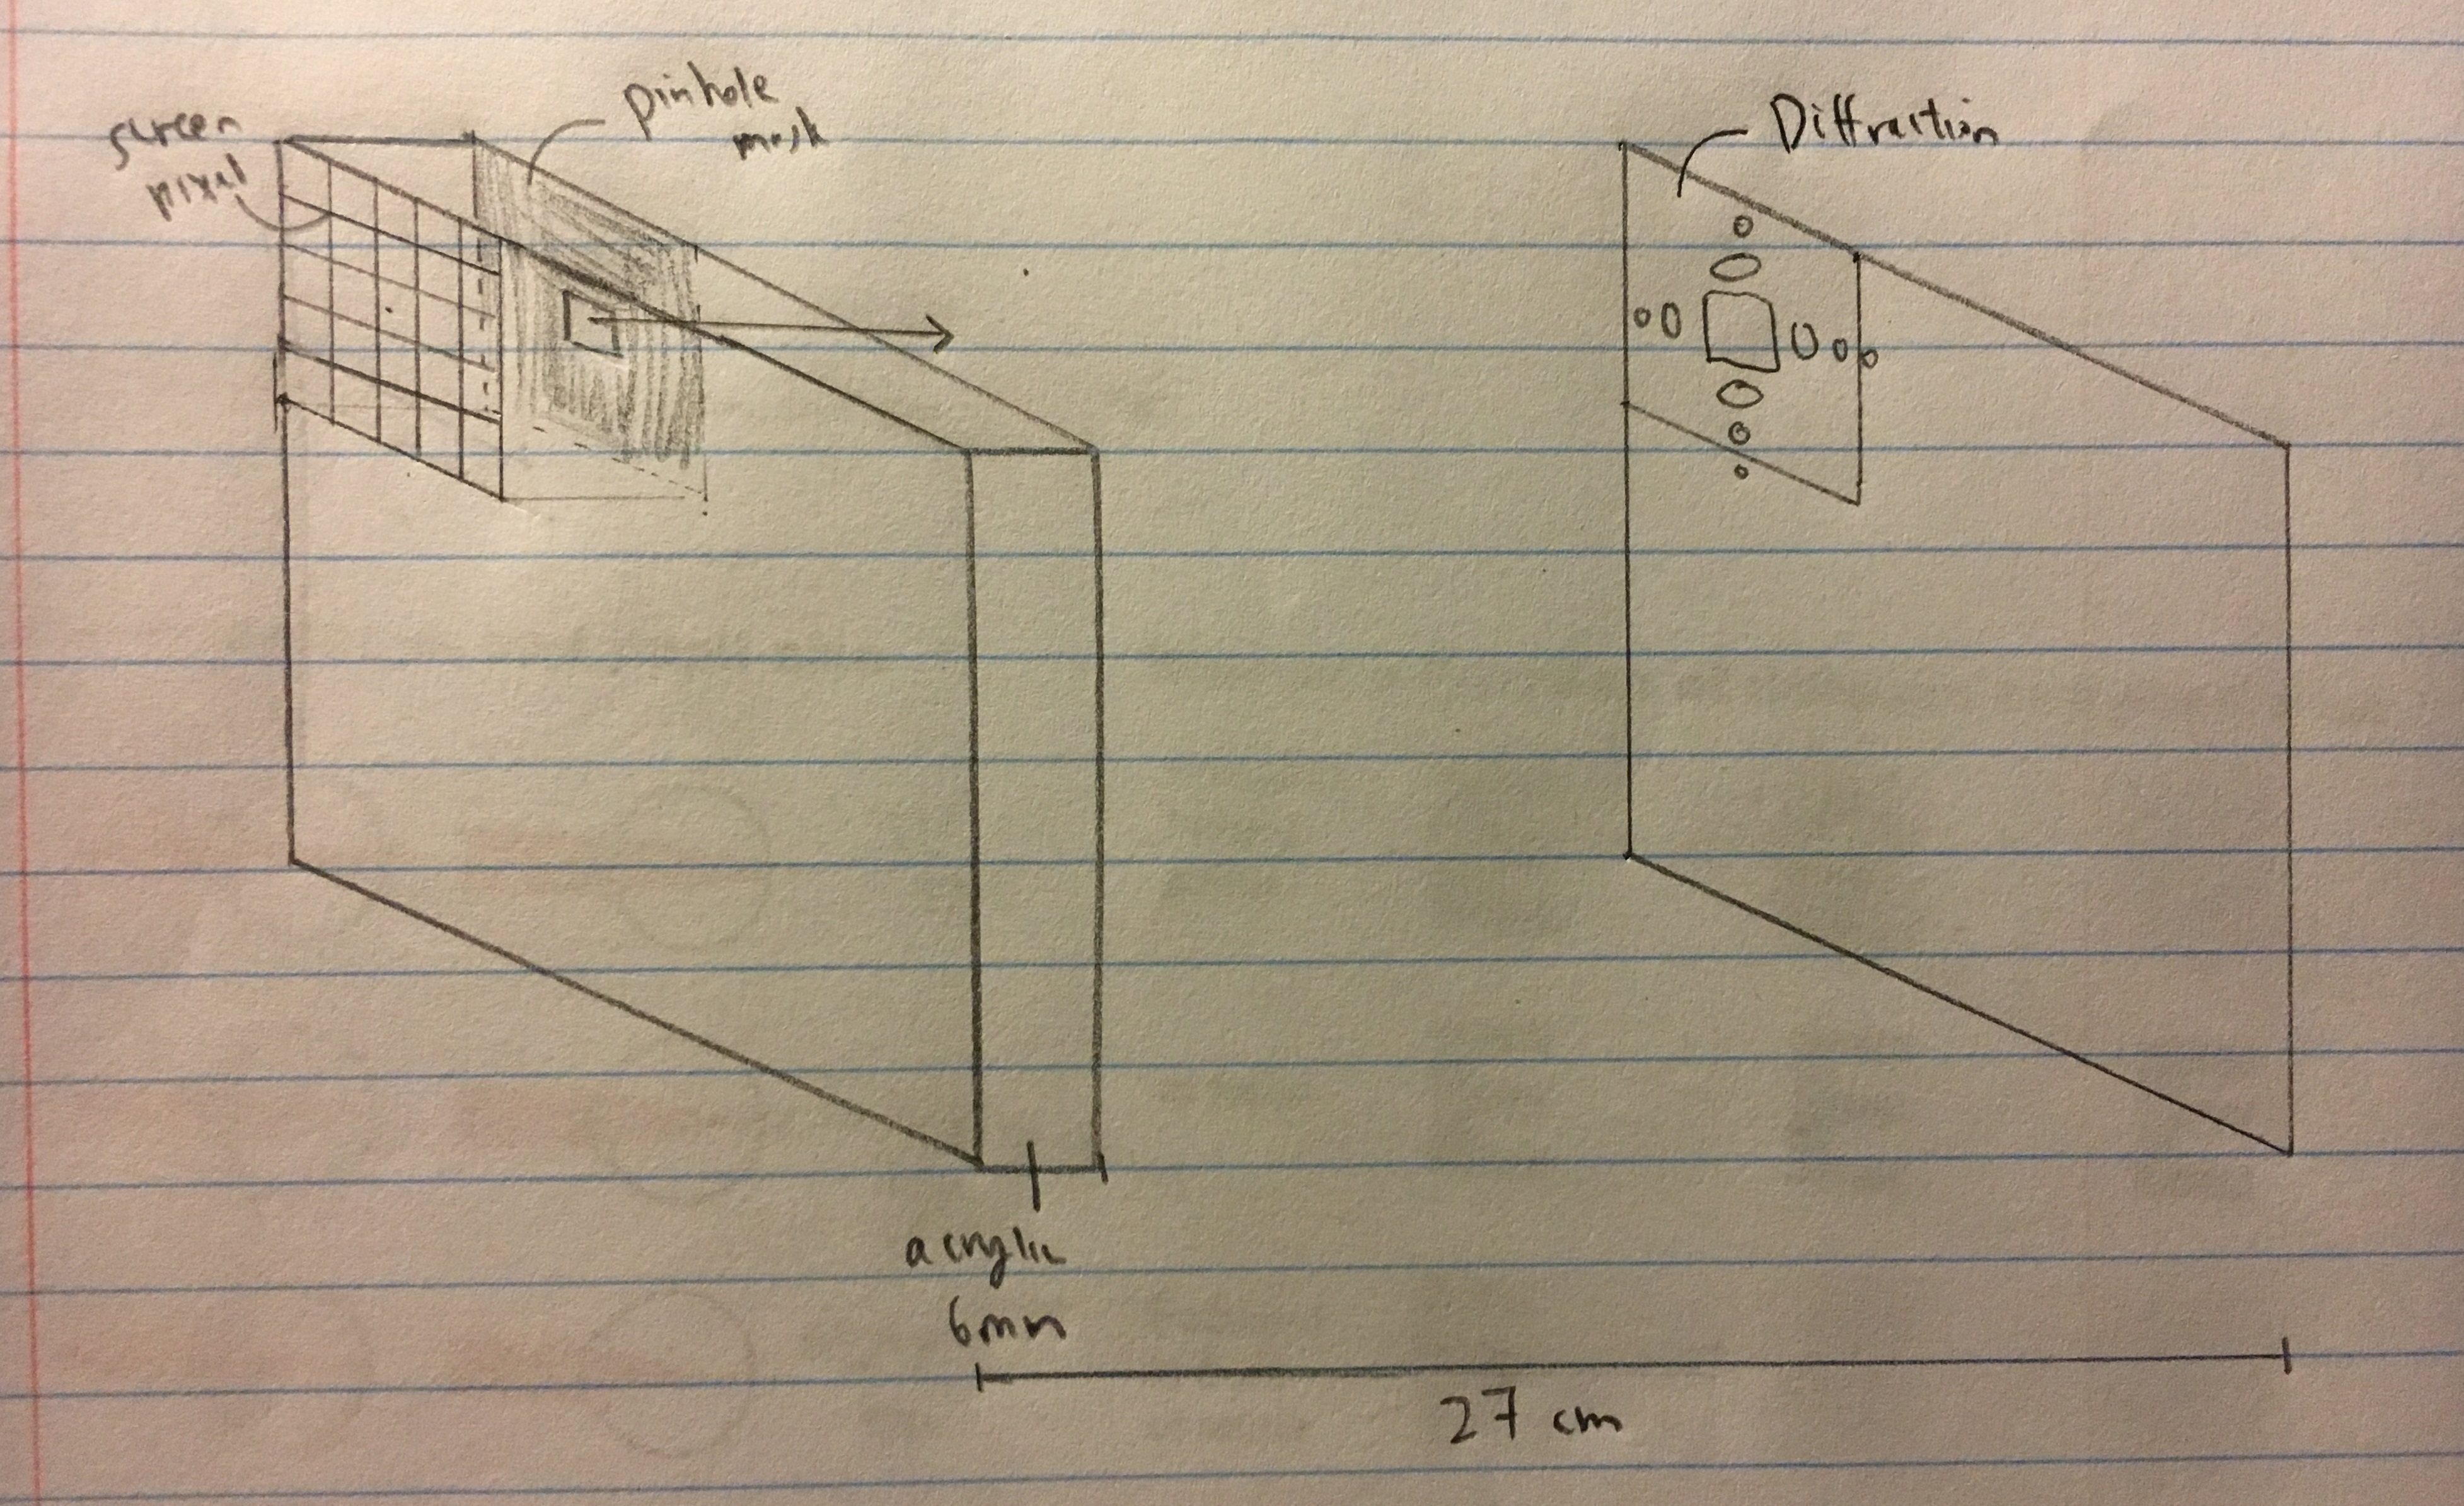 screen
pixel
pinhole
mask
Diffraction
acrylic
6mm
27 cm